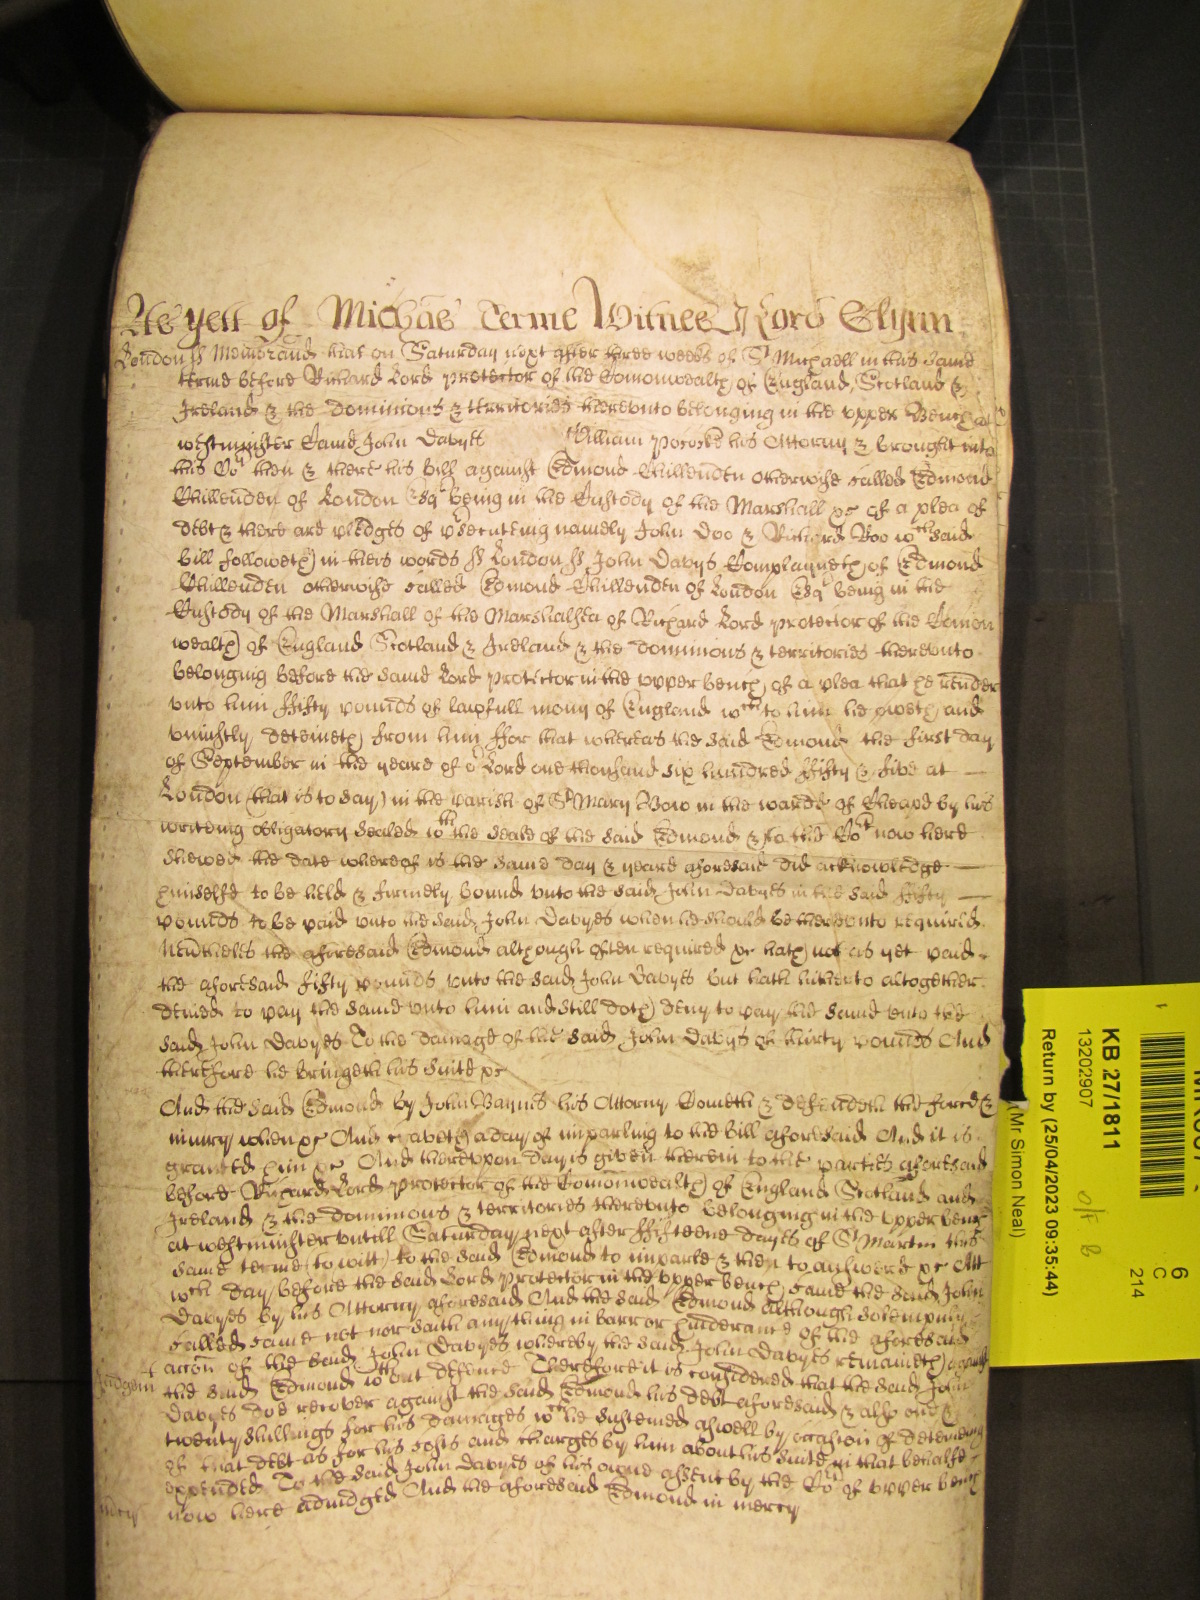 As yett of Michas Terme Witnes J Lord Glynn
London ss Memorand that on Saturday next after three weeks of St Michaell in this same
terme before Richard Lord protector of the Comonwealth of England, Scotland &
Ireland & the dominions & territories thereunto belonging in the upper Bench at
westminster Came John Davyes William Pococke his Attorny & brought into
this Cort then & there his bill against Edmond Chillenden otherwise called Edmond
Chillenden of London Esqr being in the Custody of the Marshall &c of a plea of
debt & there are pledges of psecuteing namely John Doo & Richard Roo wch said
bill followeth in theis words ss London ss John Davys Complayneth of Edmond
Chillenden otherwise called Edmond Chillenden of London Esqr being in the
Custody of the Marshall of the Marshalsea of Richard Lord protector of the Comon
wealth of England Scotland & Ireland & the dominions & territories thereunto
belonging before the same Lord protector in the upper bench of a plea that he render
unto him ffifty pounds of lawfull mony of England wch to him he oweth and
uniustly deteineth from him ffor that whereas the said Edmond the first day
of September in the yeare of or Lord one thousand six hundred ffifty & five at
London (that is to say) in the parish of St Mary Bow in the warde of Cheape by his
writeing obligatory sealed wth the seale of the said Edmond & to the Cort now here
shewed the date whereof is the same day & yeare aforesaid did acknowledge
himselfe to be held & firmely bound unto the said John Davyes in the said fifty
pounds to be paid unto the said John Davyes when he should be thereunto required
Nevtheles the aforesaid Edmond although often required &c hath not as yet paid
the aforesaid fifty pounds unto the said John Davyes but hath hitherto altogether
denied to pay the same unto him and still doth deny to pay the same unto the
said John Davyes To the damage of the said John Davys of thirty pounds And
therefore he bringeth his suite &c
And the said Edmond by John Baynes his Attorny Cometh & defendeth the force &
iniury when &c And craveth a day of imparling to the bill aforesaid And it is
granted him &c And thereupon day is given therein to the parties aforesaid
before Richard Lord protector of the Comonwealth of England Scotland and
Ireland & the dominions & territories thereunto belonging in the upper bench
at westminster untill Saturday next after ffifteene dayes of St Martin this
same terme (to witt) to the said Edmond to imparle & then to answere &c Att
wch day before the said Lord protector in the upper bench came the said John
Davyes by his Attorny aforesaid And the said Edmond although solempnly
called came not nor saith any thing in barr or hinderance of the aforesaid
accon of the said John Davyes whereby the said John Davyes remaineth against
the said Edmond wthout defence Therefore it is considered that the said John
Davyes doe recover against the said Edmond his debt aforesaid & also
twenty shillings for his damages wch he susteined aswell by occasion of deteineing
of that debt as for his costs and charges by him about his suite in that behalfe
expended To the said John Davyes of his owne assent by the Cort of upper bench
now here adiudged And the aforesaid Edmond in mercy
Judgmt
mercy
KB 27/1811
13202907
Return by (25/04/2023 09:35:44)
(Mr Simon Neal)
6
C
214